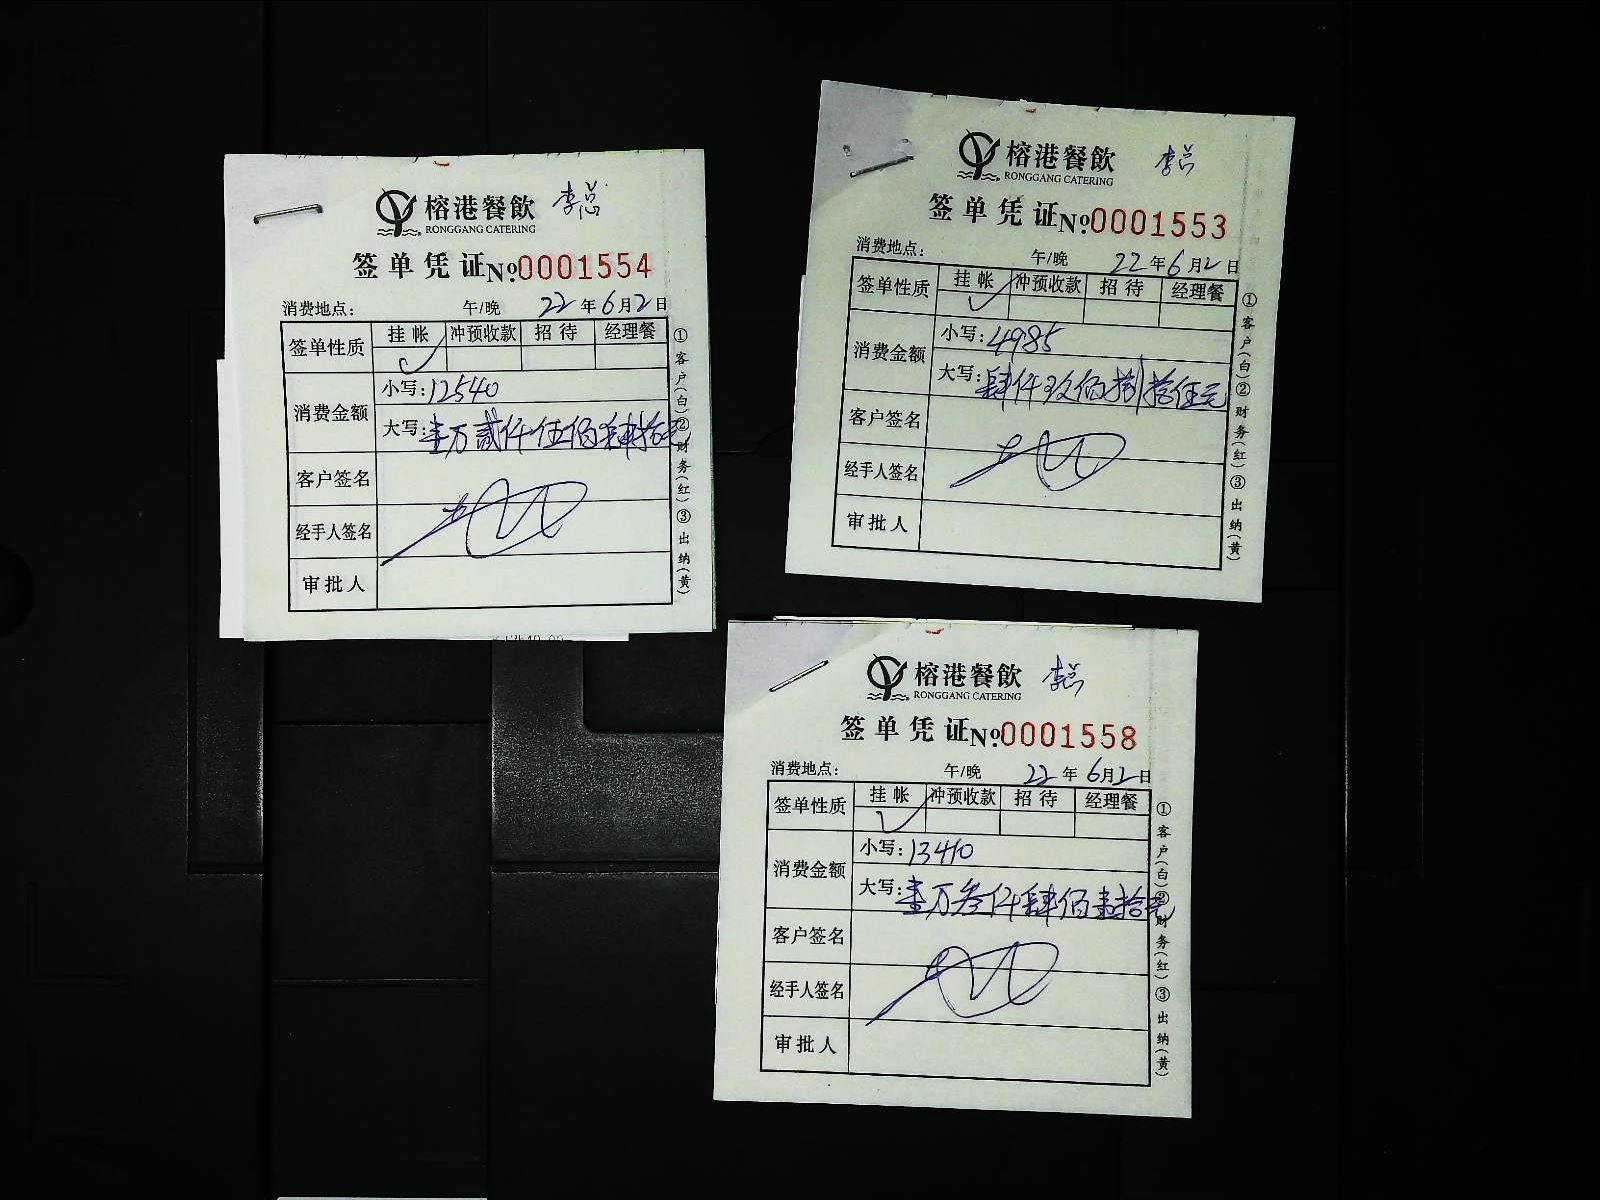 榕港餐飲 李总
RONGGANG CATERING
签单凭证 №0001554
消费地点: 午/晚 22年6月2日
签单性质 挂帐 冲预收款 招待 经理餐
消费金额
小写:12540
大写:壹万贰仟伍佰肆拾元
客户签名
经手人签名
审批人
①客户(白)②财务(红)③出纳(黄)
榕港餐飲 李总
RONGGANG CATERING
签单凭证 №0001553
消费地点: 午/晚 22年6月2日
签单性质 挂帐 冲预收款 招待 经理餐
消费金额
小写:4985
大写:肆仟玖佰捌拾伍元
客户签名
经手人签名
审批人
①客户(白)②财务(红)③出纳(黄)
榕港餐飲 李总
RONGGANG CATERING
签单凭证 №0001558
消费地点: 午/晚 22年6月2日
签单性质 挂帐 冲预收款 招待 经理餐
消费金额
小写:13410
大写:壹万叁仟肆佰壹拾元
客户签名
经手人签名
审批人
①客户(白)②财务(红)③出纳(黄)